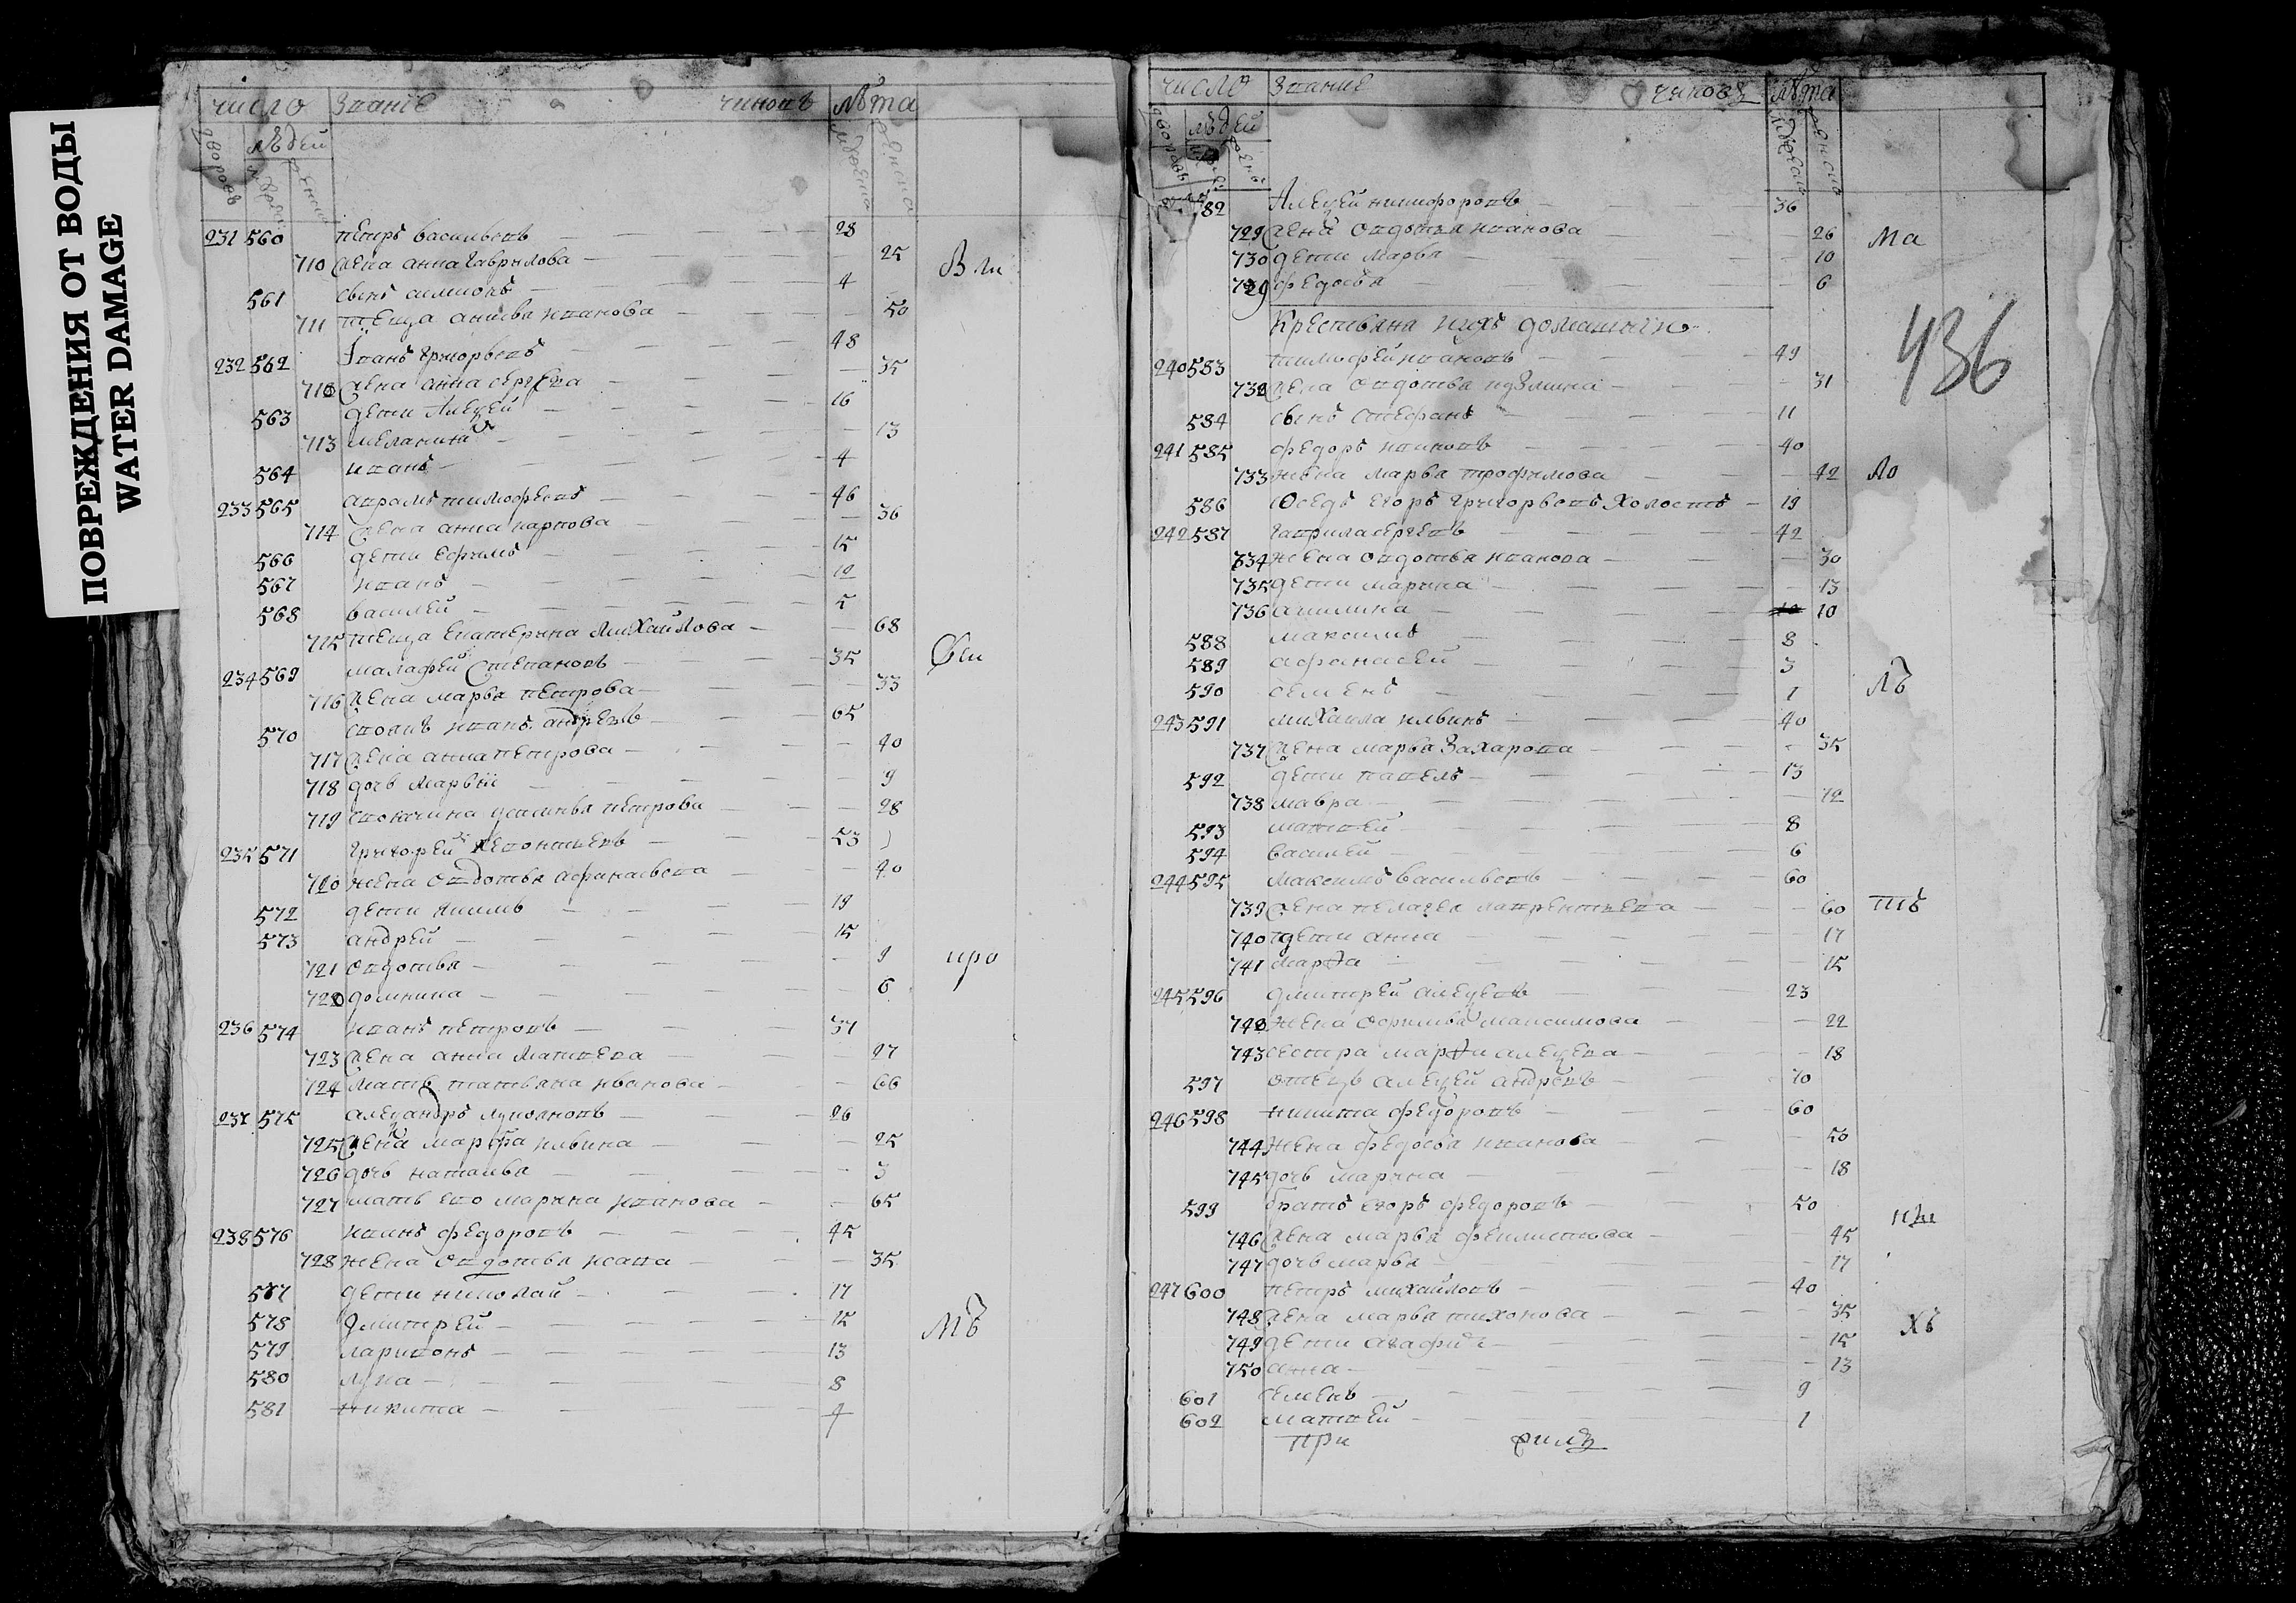 ПОВРЕЖДЕНИЯ ОТ ВОДЫ
WATER DAMAGE
число Звание чиновъ лѣта
дворовъ людей
231 560 петръ васильевъ 28
710 жена анна гаврилова 25
561 сынъ симионъ 4
711 теща анисья иванова 50
232 562 Iванъ григорьевъ 48
712 жена анна сергѣева 35
563 дети Алеѯей 16
713 меланиiа 13
564 иванъ 4
233 565 аврамъ тимофеевъ 46
714 жена анна карпова 36
566 дети ефимъ 15
567 иванъ 12
568 василей 5
715 теща екатерина михайлова 68
234 569 малафей Степановъ 35
716 жена марья петрова 33
570 иванъ андреевъ 65
717 жена анна петрова 40
718 дочь 9
719 петрова 28
235 571 григорей 53
720 жена овдотья афанасьева 40
572 дети якимъ 19
573 андрей 15
721 овдотья 9
722 домнина 6
236 574 иванъ петровъ 31
723 жена анна матвеева 27
724 мать татьяна иванова 66
237 575 алеѯандръ лукояновъ 26
725 жена марфа ильина 25
726 дочь наталья 3
727 мать ево марина иванова 65
238 576 иванъ федоровъ 45
728 жена овдотья исаева 35
577 дети николай 17
578 дмитрей 15
579 ларивонъ 13
580 лука 8
581 никита 4
Ѳи
про
мъ
число Звание чиновъ лѣта
дворовъ людей
582 Алеѯей никифоровъ 36
729 жена овдотья иванова 26
730 дети марья 10
федосья 6
Крестьяна ихъ домашнiи
240 583 тимофей ивановъ 49
732 жена овдотья кузмина 31
584 сынъ степанъ 11
241 585 федоръ ивановъ 40
733 жена марья трофимова 42
586 сосѣдъ егоръ григорьевъ холостъ 19
242 587 гаврила сергеевъ 42
734 жена овдотья иванова 30
735 дети марина 13
736 акилина 10
588 максимъ 8
589 афанасей 3
590 семенъ 1
243 591 михаила ильинъ 40
737 жена марья захарова 35
592 дети павелъ 13
738 мавра 12
593 матвей 8
594 василей 6
244 595 максимъ васильевъ 60
739 жена пелагея лаврентьева 60
740 дети анна 17
741 марѳа 15
245 596 дмитрей алеѯеевъ 23
742 жена офимья максимова 22
743 сестра марѳа алеѯеева 18
597 отецъ алеѯей андреевъ 70
246 598 никита федоровъ 60
744 жена федосья иванова 50
745 дочь марина 18
599 братъ егоръ федоровъ 50
746 жена марья феклистова 45
747 дочь марья 17
247 600 петръ михайловъ 40
748 жена марья тихонова 35
749 дети агафiя 15
750 анна 13
601 семенъ 9
602 матвей 1
ма
436
ло
лъ
тъ
хъ
при